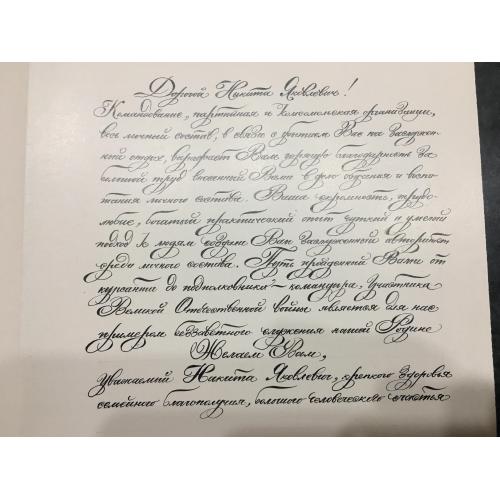 Дорогой Никита Яковлевич!
Командование, партийная и комсомольская организации,
весь личный состав, в связи с уходом Вас на заслужен-
ный отдых, выражает Вам горячую благодарность за
большой труд вложенный Вами в дело обучения и воспи-
тания личного состава. Ваша скромность, трудо-
любие, богатый практический опыт чуткий и умелый
подход к людям создали Вам заслуженный авторитет
среди личного состава. Путь пройденный Вами от
курсанта до подполковника - командира, участника
Великой Отечественной войны является для нас
примером беззаветного служения нашей Родине
Желаем Вам,
уважаемый Никита Яковлевич, крепкого здоровья
семейного благополучия, большого человеческого счастья